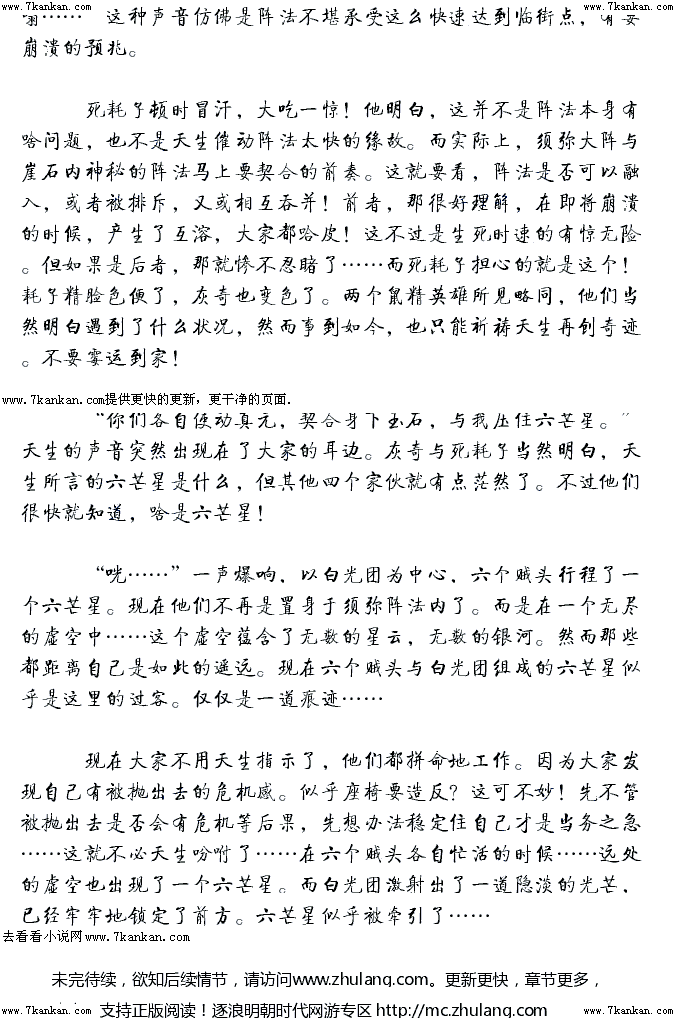 www.7kankan.com www.7kankan.com
……　这种声音仿佛是阵法不堪承受这么快速达到临街点，有要
崩溃的预兆。
死耗子顿时冒汗，大吃一惊！他明白，这并不是阵法本身有
啥问题，也不是天生催动阵法太快的缘故。而实际上，须弥大阵与
崖石内神秘的阵法马上要契合的前奏。这就要看，阵法是否可以融
入，或者被排斥，又或相互吞并！前者，那很好理解，在即将崩溃
的时候，产生了互溶，大家都哈皮！这不过是生死时速的有惊无险
。但如果是后者，那就惨不忍睹了……而死耗子担心的就是这个！
耗子精脸色便了，灰奇也变色了。两个鼠精英雄所见略同，他们当
然明白遇到了什么状况，然而事到如今，也只能祈祷天生再创奇迹
。不要霉运到家！
www.7kankan.com提供更快的更新，更干净的页面.
“你们各自使动真元，契合身下玉石，与我压住六芒星。”
天生的声音突然出现在了大家的耳边。灰奇与死耗子当然明白，天
生所言的六芒星是什么，但其他四个家伙就有点茫然了。不过他们
很快就知道，啥是六芒星！
“咣……”一声爆响，以白光团为中心，六个贼头行程了一
个六芒星。现在他们不再是置身于须弥阵法内了。而是在一个无尽
的虚空中……这个虚空蕴含了无数的星云，无数的银河。然而那些
都距离自己是如此的遥远。现在六个贼头与白光团组成的六芒星似
乎是这里的过客。仅仅是一道痕迹……
现在大家不用天生指示了，他们都拼命地工作。因为大家发
现自己有被抛出去的危机感。似乎座椅要造反？这可不妙！先不管
被抛出去是否会有危机等后果，先想办法稳定住自己才是当务之急
……这就不必天生吩咐了……在六个贼头各自忙活的时候……远处
的虚空也出现了一个六芒星。而白光团激射出了一道隐淡的光芒，
已经牢牢地锁定了前方。六芒星似乎被牵引了……
去看看小说网www.7kankan.com
未完待续，欲知后续情节，请访问www.zhulang.com。更新更快，章节更多，
www.7kankan.com 支持正版阅读！逐浪明朝时代网游专区 http://mc.zhulang.com www.7kankan.com